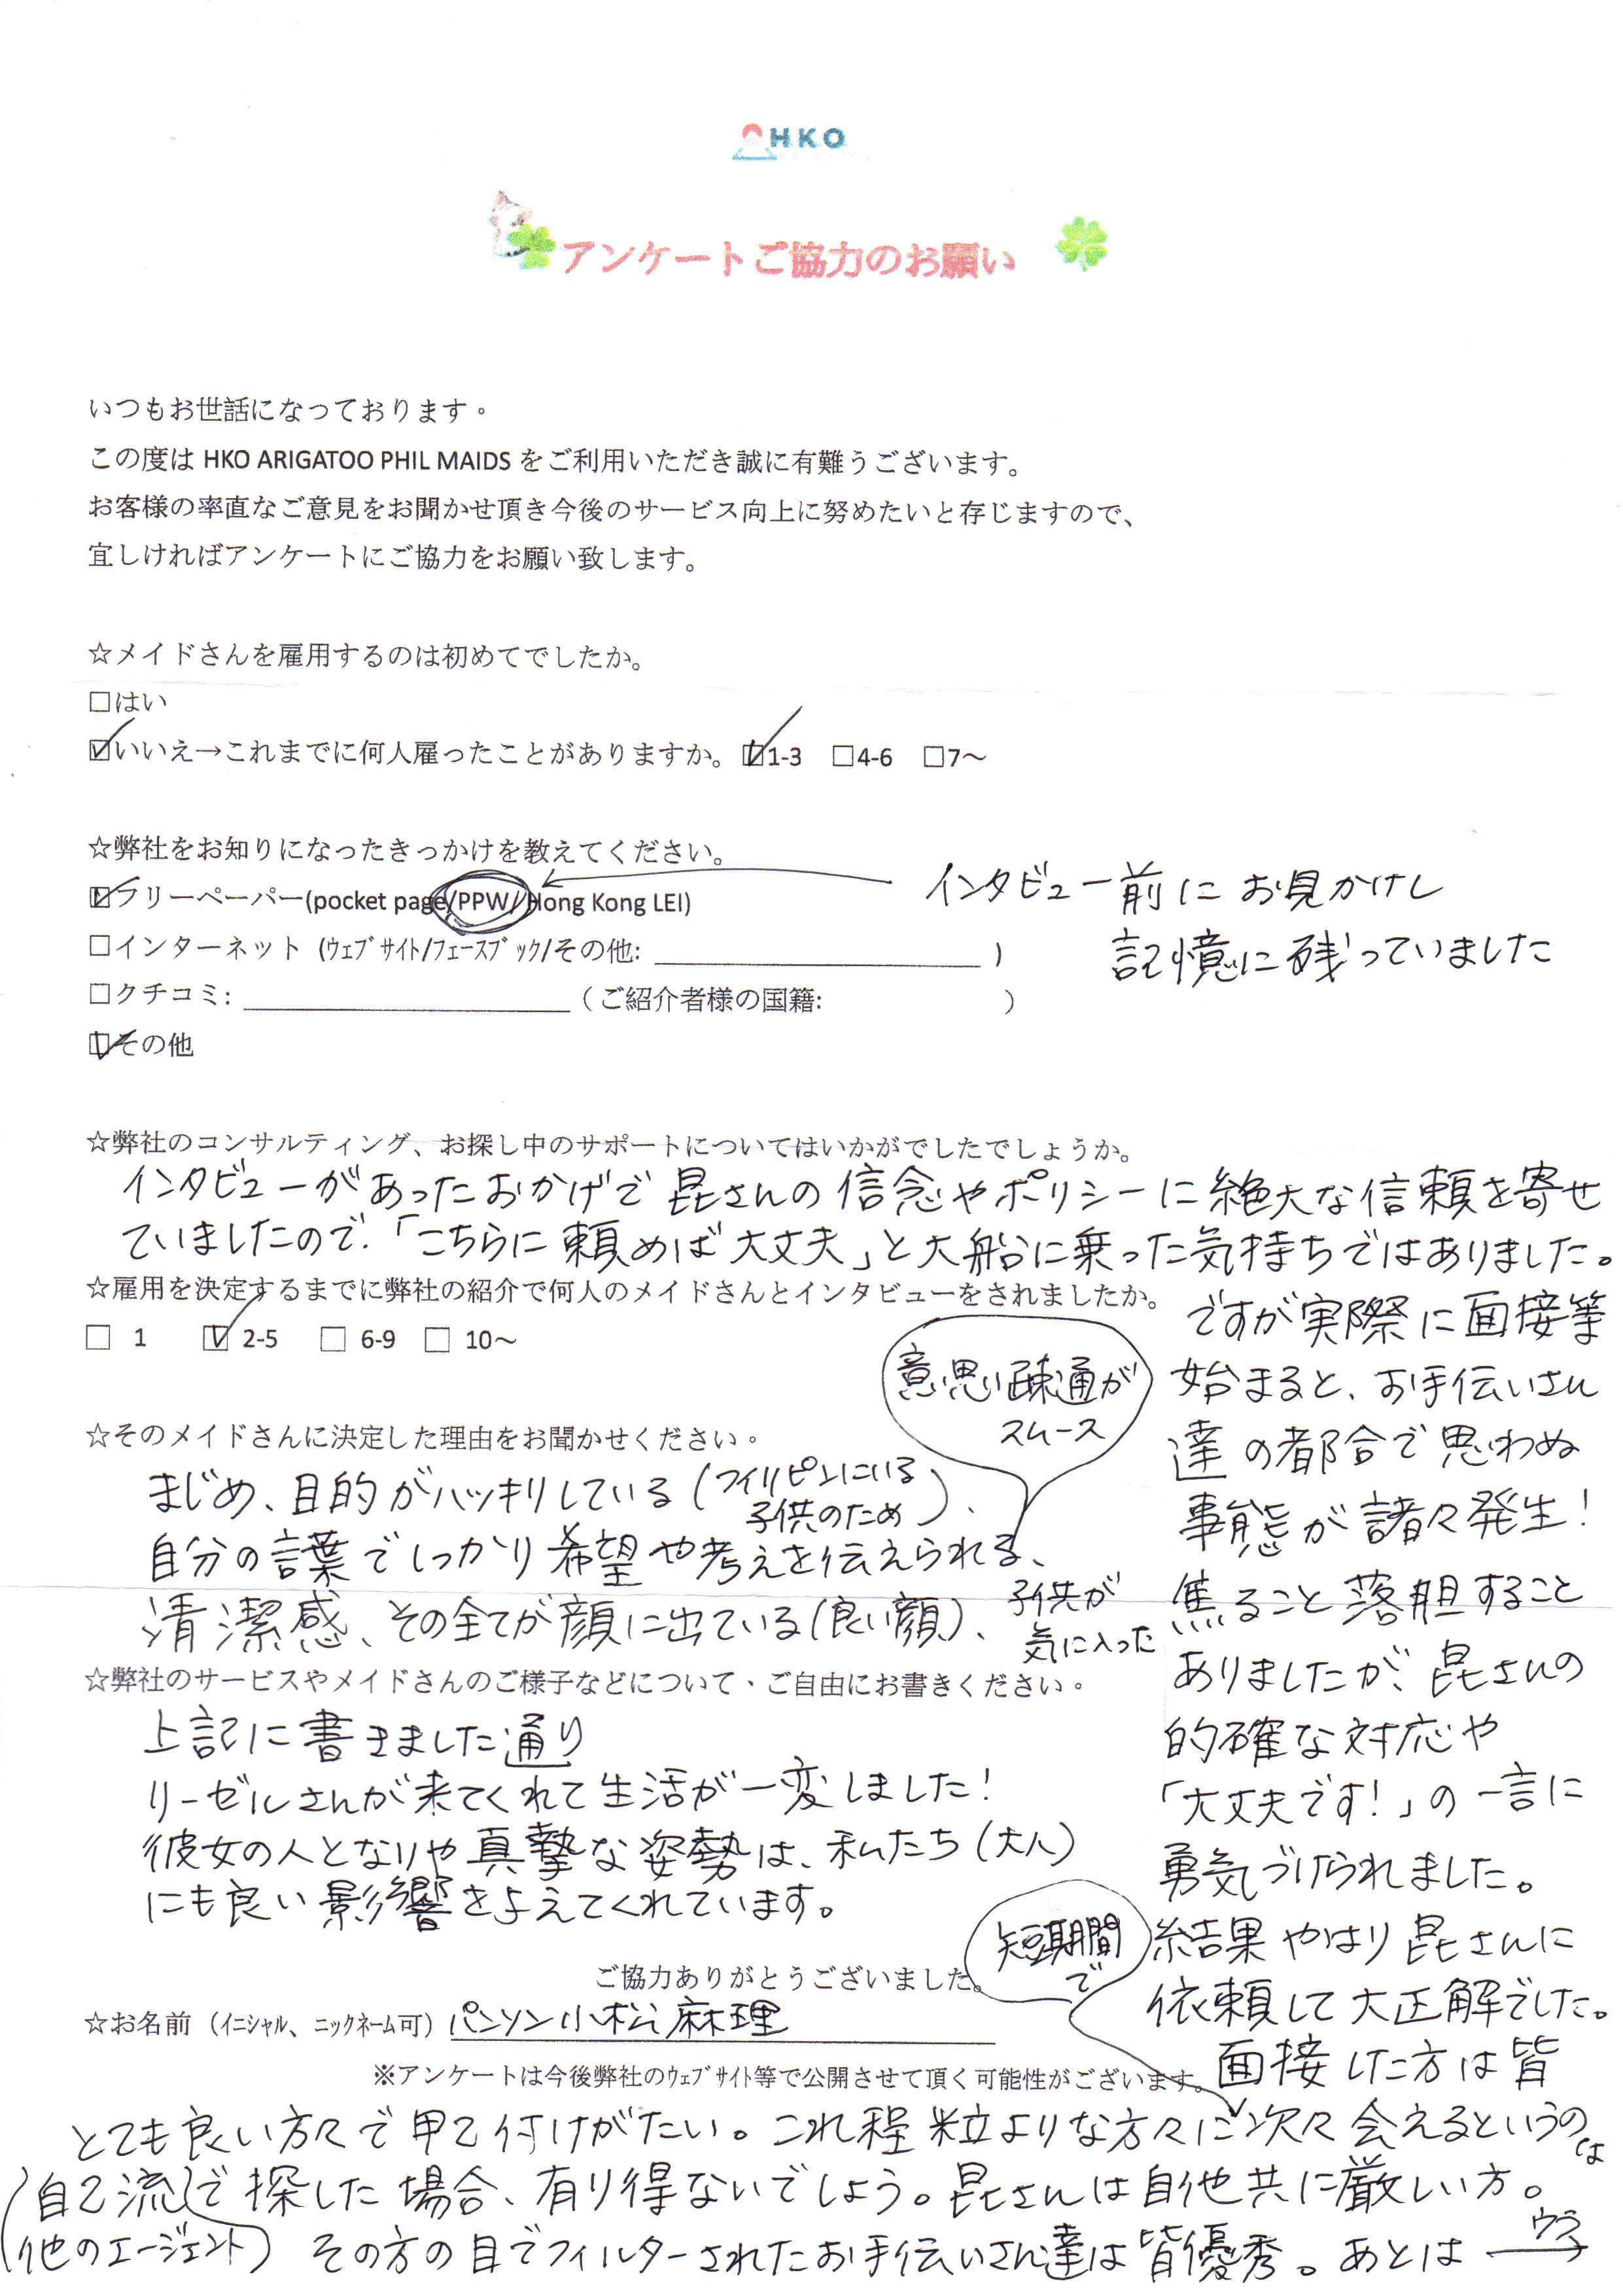 HKO
アンケートご協力のお願い
いつもお世話になっております。
この度は HKO ARIGATOO PHIL MAIDS をご利用いただき誠に有難うございます。
お客様の率直なご意見をお聞かせ頂き今後のサービス向上に努めたいと存じますので、
宜しければアンケートにご協力をお願い致します。
☆メイドさんを雇用するのは初めてでしたか。
□はい
☑いいえ→これまでに何人雇ったことがありますか。☑1-3 □4-6 □7～
☆弊社をお知りになったきっかけを教えてください。
☑フリーペーパー(pocket page/PPW/Hong Kong LEI)
インタビュー前にお見かけし
記憶に残っていました
□インターネット (ｳｪﾌﾞｻｲﾄ/ﾌｪｰｽﾌﾞｯｸ/その他: )
□クチコミ: （ご紹介者様の国籍: ）
☑その他
☆弊社のコンサルティング、お探し中のサポートについてはいかがでしたでしょうか。
インタビューがあったおかげで昆さんの信念やポリシーに絶大な信頼を寄せ
ていましたので、「こちらに頼めば大丈夫」と大船に乗った気持ちではありました。
ですが実際に面接等
始まると、お手伝いさん
達の都合で思わぬ
事態が諸々発生!
焦ること落胆すること
ありましたが、昆さんの
的確な対応や
「大丈夫です!」の一言に
勇気づけられました。
結果やはり昆さんに
依頼して大正解でした。
面接した方は皆
とても良い方々で甲乙付けがたい。これ程粒よりな方々に次々会えるというのは
短期間で
自己流で探した場合、有り得ないでしょう。昆さんは自他共に厳しい方。
(他のエージェント) その方の目でフィルターされたお手伝いさん達は皆優秀。あとは ウラ
☆雇用を決定するまでに弊社の紹介で何人のメイドさんとインタビューをされましたか。
□ 1 ☑ 2-5 □ 6-9 □ 10～
☆そのメイドさんに決定した理由をお聞かせください。
まじめ、目的がハッキリしている(フィリピンにいる
子供のため)、
自分の言葉でしっかり希望や考えを伝えられる、
意思い疎通が
スムース
清潔感、その全てが顔に出ている(良い顔)、子供が
気に入った
☆弊社のサービスやメイドさんのご様子などについて・ご自由にお書きください。
上記に書きました通り
リーゼルさんが来てくれて生活が一変しました!
彼女の人となりや真摯な姿勢は、私たち(大人)
にも良い影響を与えてくれています。
ご協力ありがとうございました。
☆お名前（ｲﾆｼｬﾙ、ﾆｯｸﾈｰﾑ可）パンソン小松麻理
※アンケートは今後弊社のｳｪﾌﾞｻｲﾄ等で公開させて頂く可能性がございます。